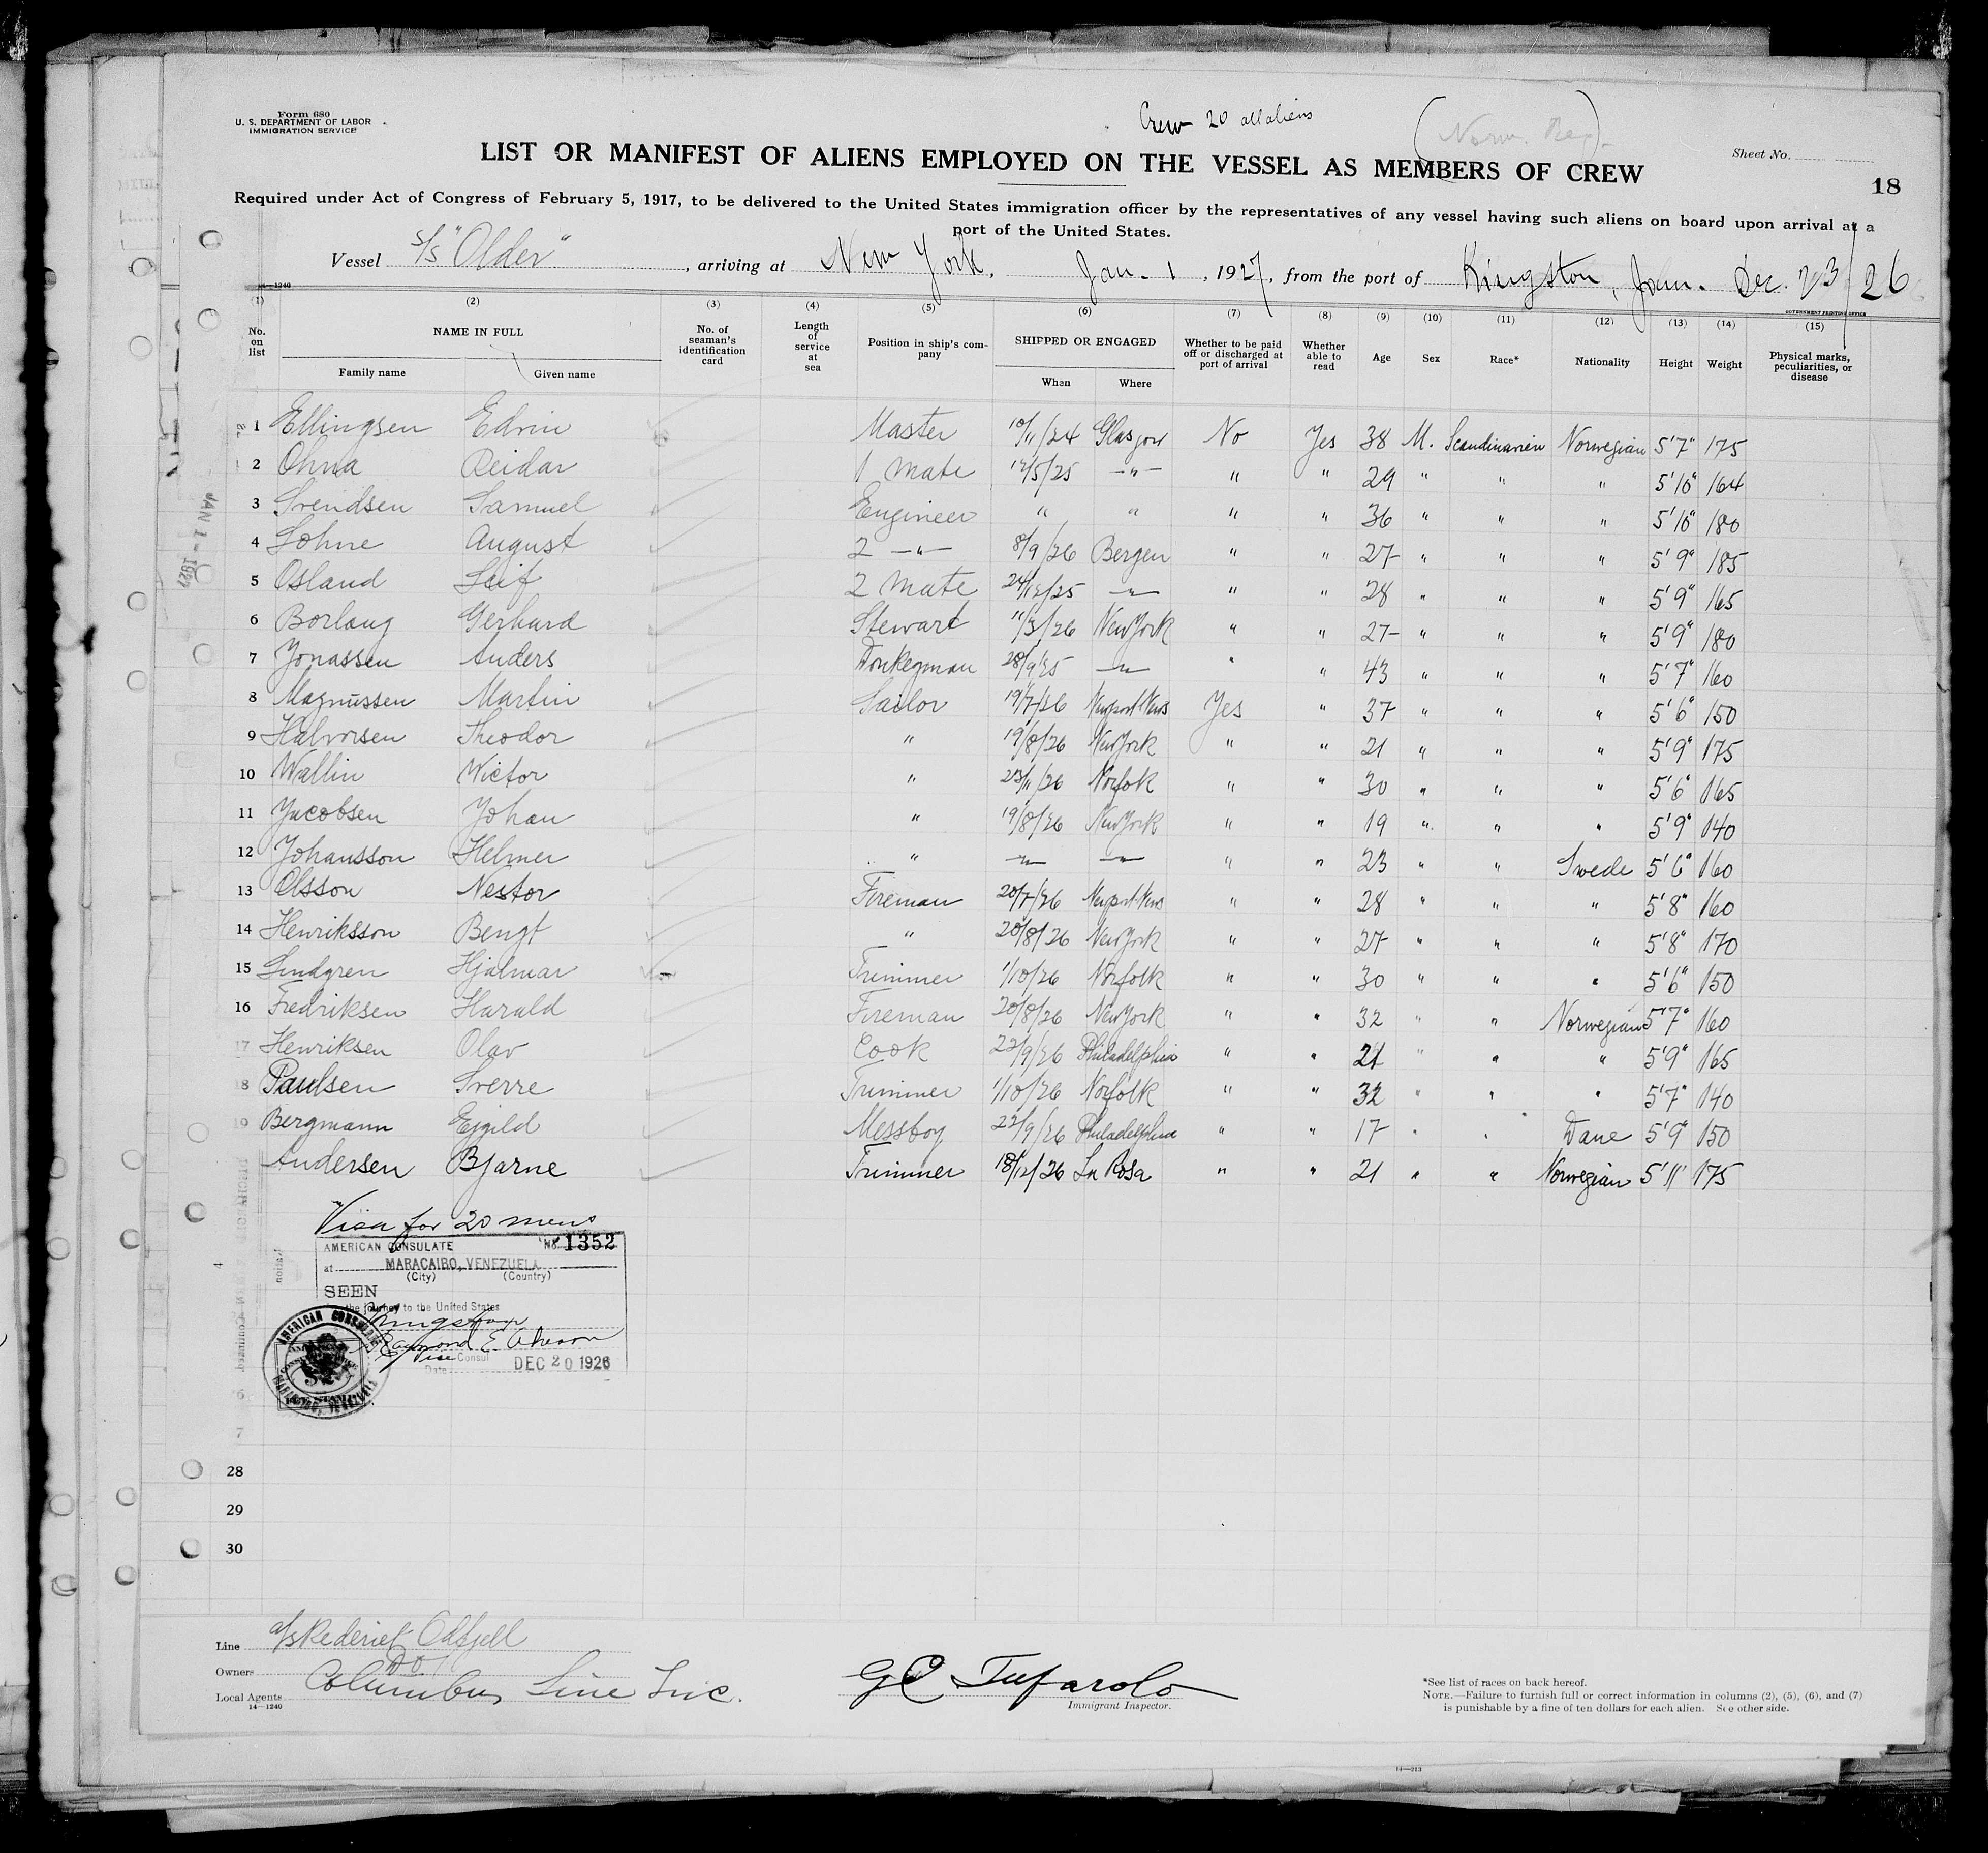 Form 680
U. S. DEPARTMENT OF LABOR
IMMIGRATION SERVICE
Crew 20 all aliens
(Norw. Reg).
LIST OR MANIFEST OF ALIENS EMPLOYED ON THE VESSEL AS MEMBERS OF CREW
Sheet No.
18
Required under Act of Congress of February 5, 1917, to be delivered to the United States immigration officer by the representatives of any vessel having such aliens on board upon arrival at a
port of the United States.
Vessel S/S "Older", arriving at New York, Jan. 1, 1927, from the port of Kingston, Jam. Dec. 23/26
14—1240
GOVERNMENT PRINTING OFFICE
(1) (2) (3) (4) (5) (6) (7) (8) (9) (10) (11) (12) (13) (14) (15)
No. on list NAME IN FULL Family name Given name No. of seaman's identification card Length of service at sea Position in ship's company SHIPPED OR ENGAGED When Where Whether to be paid off or discharged at port of arrival Whether able to read Age Sex Race* Nationality Height Weight Physical marks, peculiarities, or disease
1 Ellingsen Edvin Master 10/11/24 Glasgow No Yes 38 M. Scandinavien Norwegian 5'7" 175
2 Ohna Reidar 1 mate 12/5/25 —"— " " 29 " " " 5'10" 164
3 Svendsen Samuel Engineer " " " " 36 " " " 5'10" 180
4 Lohne August 2 —"— 8/9/26 Bergen " " 27 " " " 5'9" 185
5 Osland Leif 2 Mate 24/12/25 —"— " " 28 " " " 5'9" 165
6 Borlaug Gerhard Stewart 11/3/26 New York " " 27 " " " 5'9" 180
7 Jonassen Anders Donkeyman 28/9/25 —"— " " 43 " " " 5'7" 160
8 Magnussen Martin Sailor 19/7/26 Newport News Yes " 37 " " " 5'6" 150
9 Halvorsen Theodor " 19/8/26 New York " " 21 " " " 5'9" 175
10 Wallin Victor " 23/11/26 Norfolk " " 30 " " " 5'6" 165
11 Jacobsen Johan " 19/8/26 New York " " 19 " " " 5'9" 140
12 Johansson Helmer " —"— —"— " " 23 " " Swede 5'6" 160
13 Olsson Nestor Fireman 20/7/26 Newport News " " 28 " " " 5'8" 160
14 Henriksson Bengt " 20/8/26 New York " " 27 " " " 5'8" 170
15 Lindgren Hjalmar Trimmer 1/10/26 Norfolk " " 30 " " " 5'6" 150
16 Fredriksen Harald Fireman 20/8/26 New York " " 32 " " Norwegian 5'7" 160
17 Henriksen Olav Cook 22/9/26 Philadelphia " " 21 " " " 5'9" 165
18 Paulsen Sverre Trimmer 1/10/26 Norfolk " " 32 " " " 5'7" 140
19 Bergmann Ejgild Messboy 22/9/26 Philadelphia " " 17 " " Dane 5'9" 150
Andersen Bjarne Trimmer 18/12/26 La Rosa " " 21 " " Norwegian 5'11" 175
JAN 1 - 1927
Visa for 20 mens
AMERICAN CONSULATE No. 1352
at MARACAIBO, VENEZUELA
(City) (Country)
SEEN
the journey to the United States
Kingston
Vice Consul
Date DEC 20 1926
AMERICAN CONSULATE
MARACAIBO, VENEZUELA
4
6
7
28
29
30
Line A/S Rederiet Odfjell
Owners Do
Local Agents Columbus Line Inc.
14—1240
G C Tufarolo
Immigrant Inspector.
*See list of races on back hereof.
NOTE.—Failure to furnish full or correct information in columns (2), (5), (6), and (7)
is punishable by a fine of ten dollars for each alien. See other side.
14—213